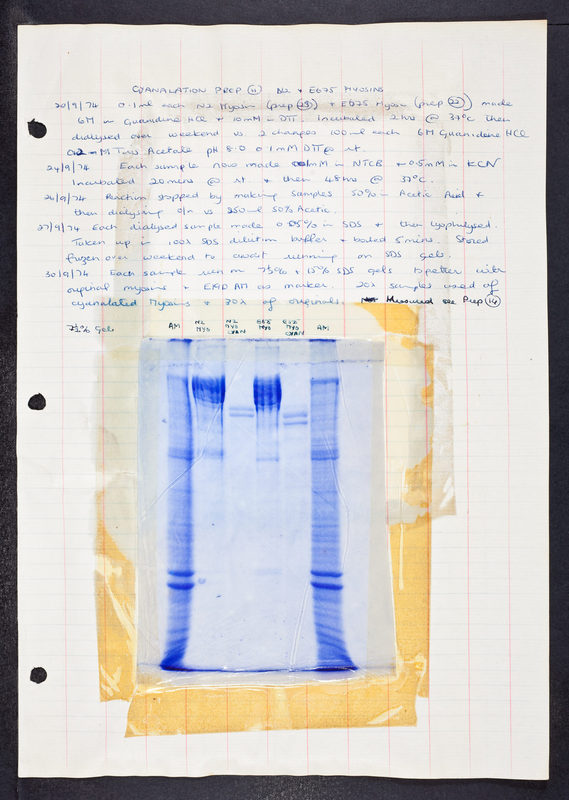 CYANALATION PREP (11) N2 + E675 MYOSINS
20/9/74 0.1ml each N2 Myosin (prep (23)) + E675 Myosin (prep (22)) made
6M in Guanidine HCl + 10mM in DTT. Incubated 2hrs @ 37°C then
dialysed over weekend vs 2 changes 100ml each 6M Guanidine HCl
0.2M Tris Acetate pH 8.0 0.1mM DTT @ r.t.
24/9/74 Each sample now made mM in NTCB + 0.5mM in KCN
Incubated 20mins @ r.t. + then 48hrs @ 37°C.
26/9/74 Reaction stopped by making samples 50% in Acetic Acid +
then dialysing o/n vs 250ml 50% Acetic.
27/9/74 Each dialysed sample made in SDS + then lyophilysed.
Taken up in 100λ SDS dilution buffer + boiled 5mins. Stored
frozen over weekend to await running on SDS gels.
30/9/74 Each sample run on 7½% + 15% SDS gels together with
original myosins + AM as marker. 20λ samples used of
cyanalated Myosins + 20λ of originals. Measured see Prep (14)
7½% Gels
AM N2 MYO N2 MYO CYAN E675 MYO E675 MYO CYAN AM